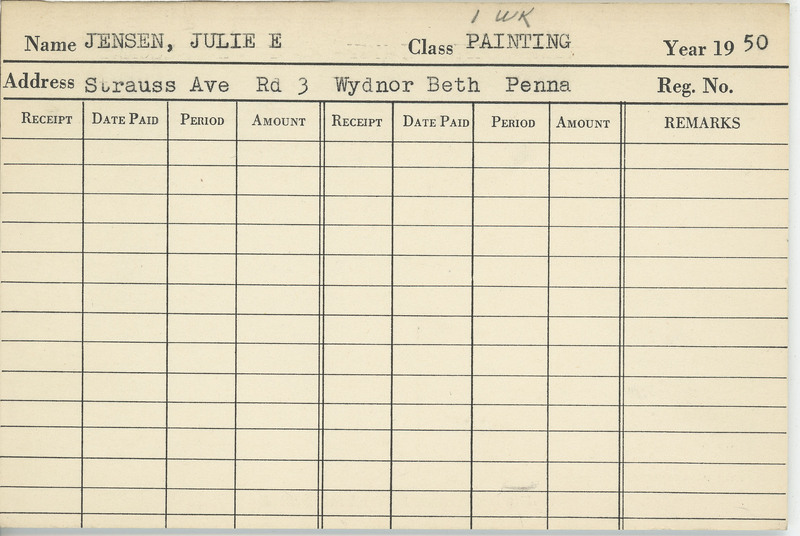 1 WK
Name JENSEN, JULIE E Class PAINTING Year 19 50
Address Strauss Ave Rd 3 Wydnor Beth Penna Reg. No.
RECEIPT DATE PAID PERIOD AMOUNT RECEIPT DATE PAID PERIOD AMOUNT REMARKS